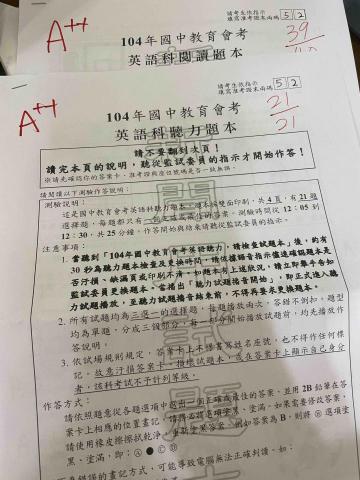 請考生依指示
填寫准考證末兩碼 5 2
A++
104年國中教育會考
39
英語科閱讀題本
請考生依指示
填寫准考證末兩碼 5 2
A++
104年國中教育會考
21
21
英語科聽力題本
請不要翻到次頁！
讀完本頁的說明，聽從監試委員的指示才開始作答！
※請先確認你的答案卡、准考證與座位號碼是否一致無誤。
請閱讀以下測驗作答說明：
測驗說明：
這是國中教育會考英語科聽力題本，題本採雙面印刷，共4頁，有21題
選擇題，每題都只有一個正確或最佳的答案。測驗時間從12：05到
12：30，共25分鐘。作答開始與結束請聽從監試委員的指示。
注意事項：
1. 當聽到「104年國中教育會考英語聽力，請檢查試題本」後，約有
30秒為聽力題本檢查及更換時間，請依據語音指示儘速確認題本是
否汙損、缺漏頁或印刷不清，如題本有上述狀況，請立即舉手告知
監試委員更換題本。當播出「聽力試題播音開始」，即正式進入聽
力試題播放，至聽力試題播音結束前，不得再要求更換題本。
2. 所有試題均為三選一的選擇題，每題播放兩次，答錯不倒扣。題型
均為單題，分成三個部分，每一部分開始播放試題前，均先播放作
答說明。
3. 依試場規則規定，答案卡上不得書寫姓名座號，也不得作任何標
記。故意汙損答案卡、損壞試題本，或在答案卡上顯示自己身分
者，該科考試不予計列等級。
作答方式：
請依照題意從各題選項中選出一個正確或最佳的答案，並用2B鉛筆在答
案卡上相應的位置畫記，請將選項塗黑、塗滿。如果需要修改答案，
請使用橡皮擦擦拭乾淨，重新塗黑答案。例如答案為B，則將Ⓑ選項塗
黑、塗滿，即：Ⓐ ● Ⓒ Ⓓ
為錯誤的畫記方式，可能導致電腦無法正確判讀。如：